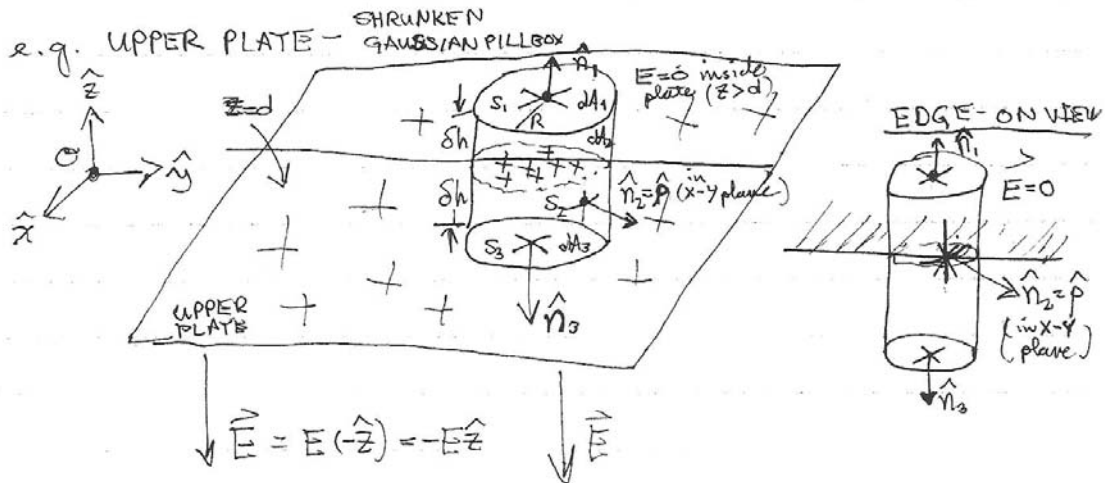 e.g. UPPER PLATE - SHRUNKEN
GAUSSIAN PILLBOX
ẑ
O
ŷ
x̂
z=d
n̂₁
S₁
dA₁
R
E=0 inside
plate (z>d)
δh
dA₂
δh
n̂₂=ρ̂ (in x-y plane)
S₂
S₃
dA₃
n̂₃
UPPER
PLATE
E⃗ = E(-ẑ) = -Eẑ
E⃗
EDGE-ON VIEW
n̂₁
E⃗=0
n̂₂=ρ̂
(in x-y
plane)
n̂₃